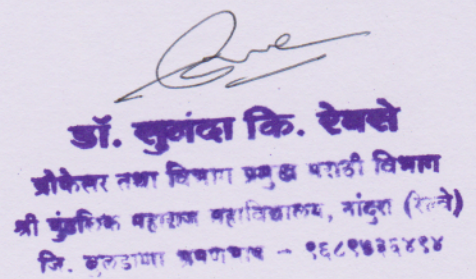 डॉ. सुनंदा कि. रेबसे
प्रोफेसर तथा विभाग प्रमुख मराठी विभाग
श्री पुंडलिक महाराज महाविद्यालय, नांदुरा (रेल्वे)
जि. बुलडाणा - ९६८९४३६४९४